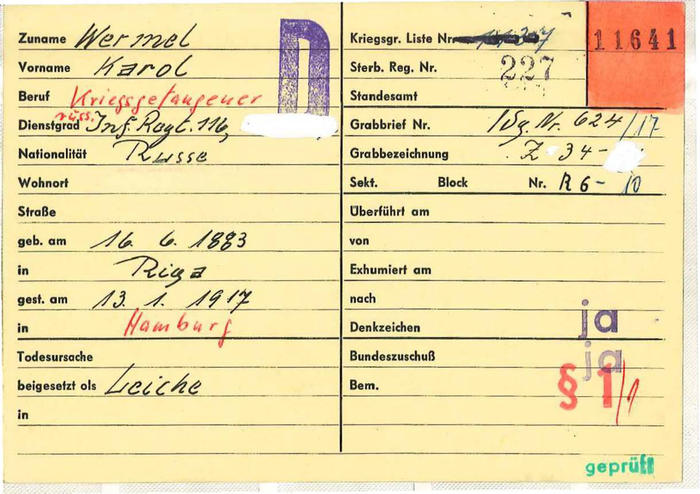 Zuname Wermel
Vorname Karol
Beruf Kriegsgefangener
russ.
Dienstgrad Inf. Regt. 116,
Nationalität Russe
Wohnort
Straße
geb. am 16. 6. 1883
in Riga
gest. am 13. 1. 1917
in Hamburg
Todesursache
beigesetzt als Leiche
in
D
Kriegsgr. Liste Nr.
11641
Sterb. Reg. Nr. 227
Standesamt
Grabbrief Nr. Nr. 624/17
Grabbezeichnung Z-34-
Sekt. Block Nr. R6-10
Überführt am
von
Exhumiert am
nach
Denkzeichen ja
Bundeszuschuß ja
Bem. § 1/1
geprüft